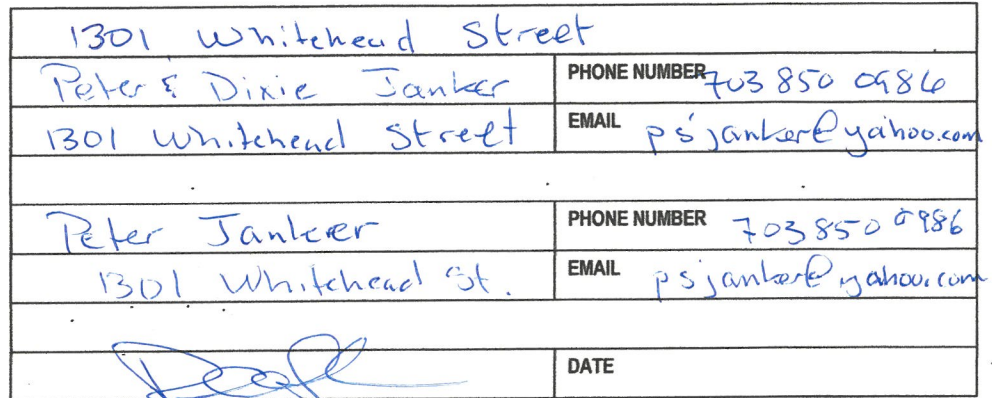 1301 Whitehead Street
Peter & Dixie Janker PHONE NUMBER 703 850 0986
1301 Whitehead Street EMAIL psjanker@yahoo.com
Peter Janker PHONE NUMBER 703 850 0986
1301 Whitehead St. EMAIL psjanker@yahoo.com
DATE